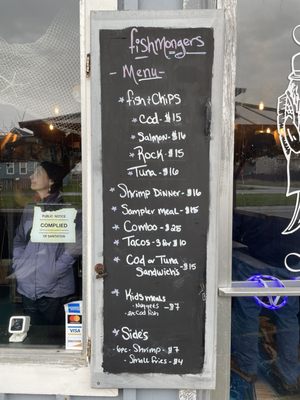 fishmongers
- Menu -
* fish & Chips
* Cod - $15
* Salmon - $16
* Rock - $15
* Tuna - $16
* Shrimp Dinner - $16
* Sampler meal - $15
* Combo - $25
* Tacos - 3 for $10
* Cod or Tuna
Sandwich's - $15
* Kids meals
- Nuggets - $7
- 2x Cod fish
* Side's
6pc - Shrimp - $7
Small fries - $4
PUBLIC NOTICE
COMPLIED
SANITATION
VISA